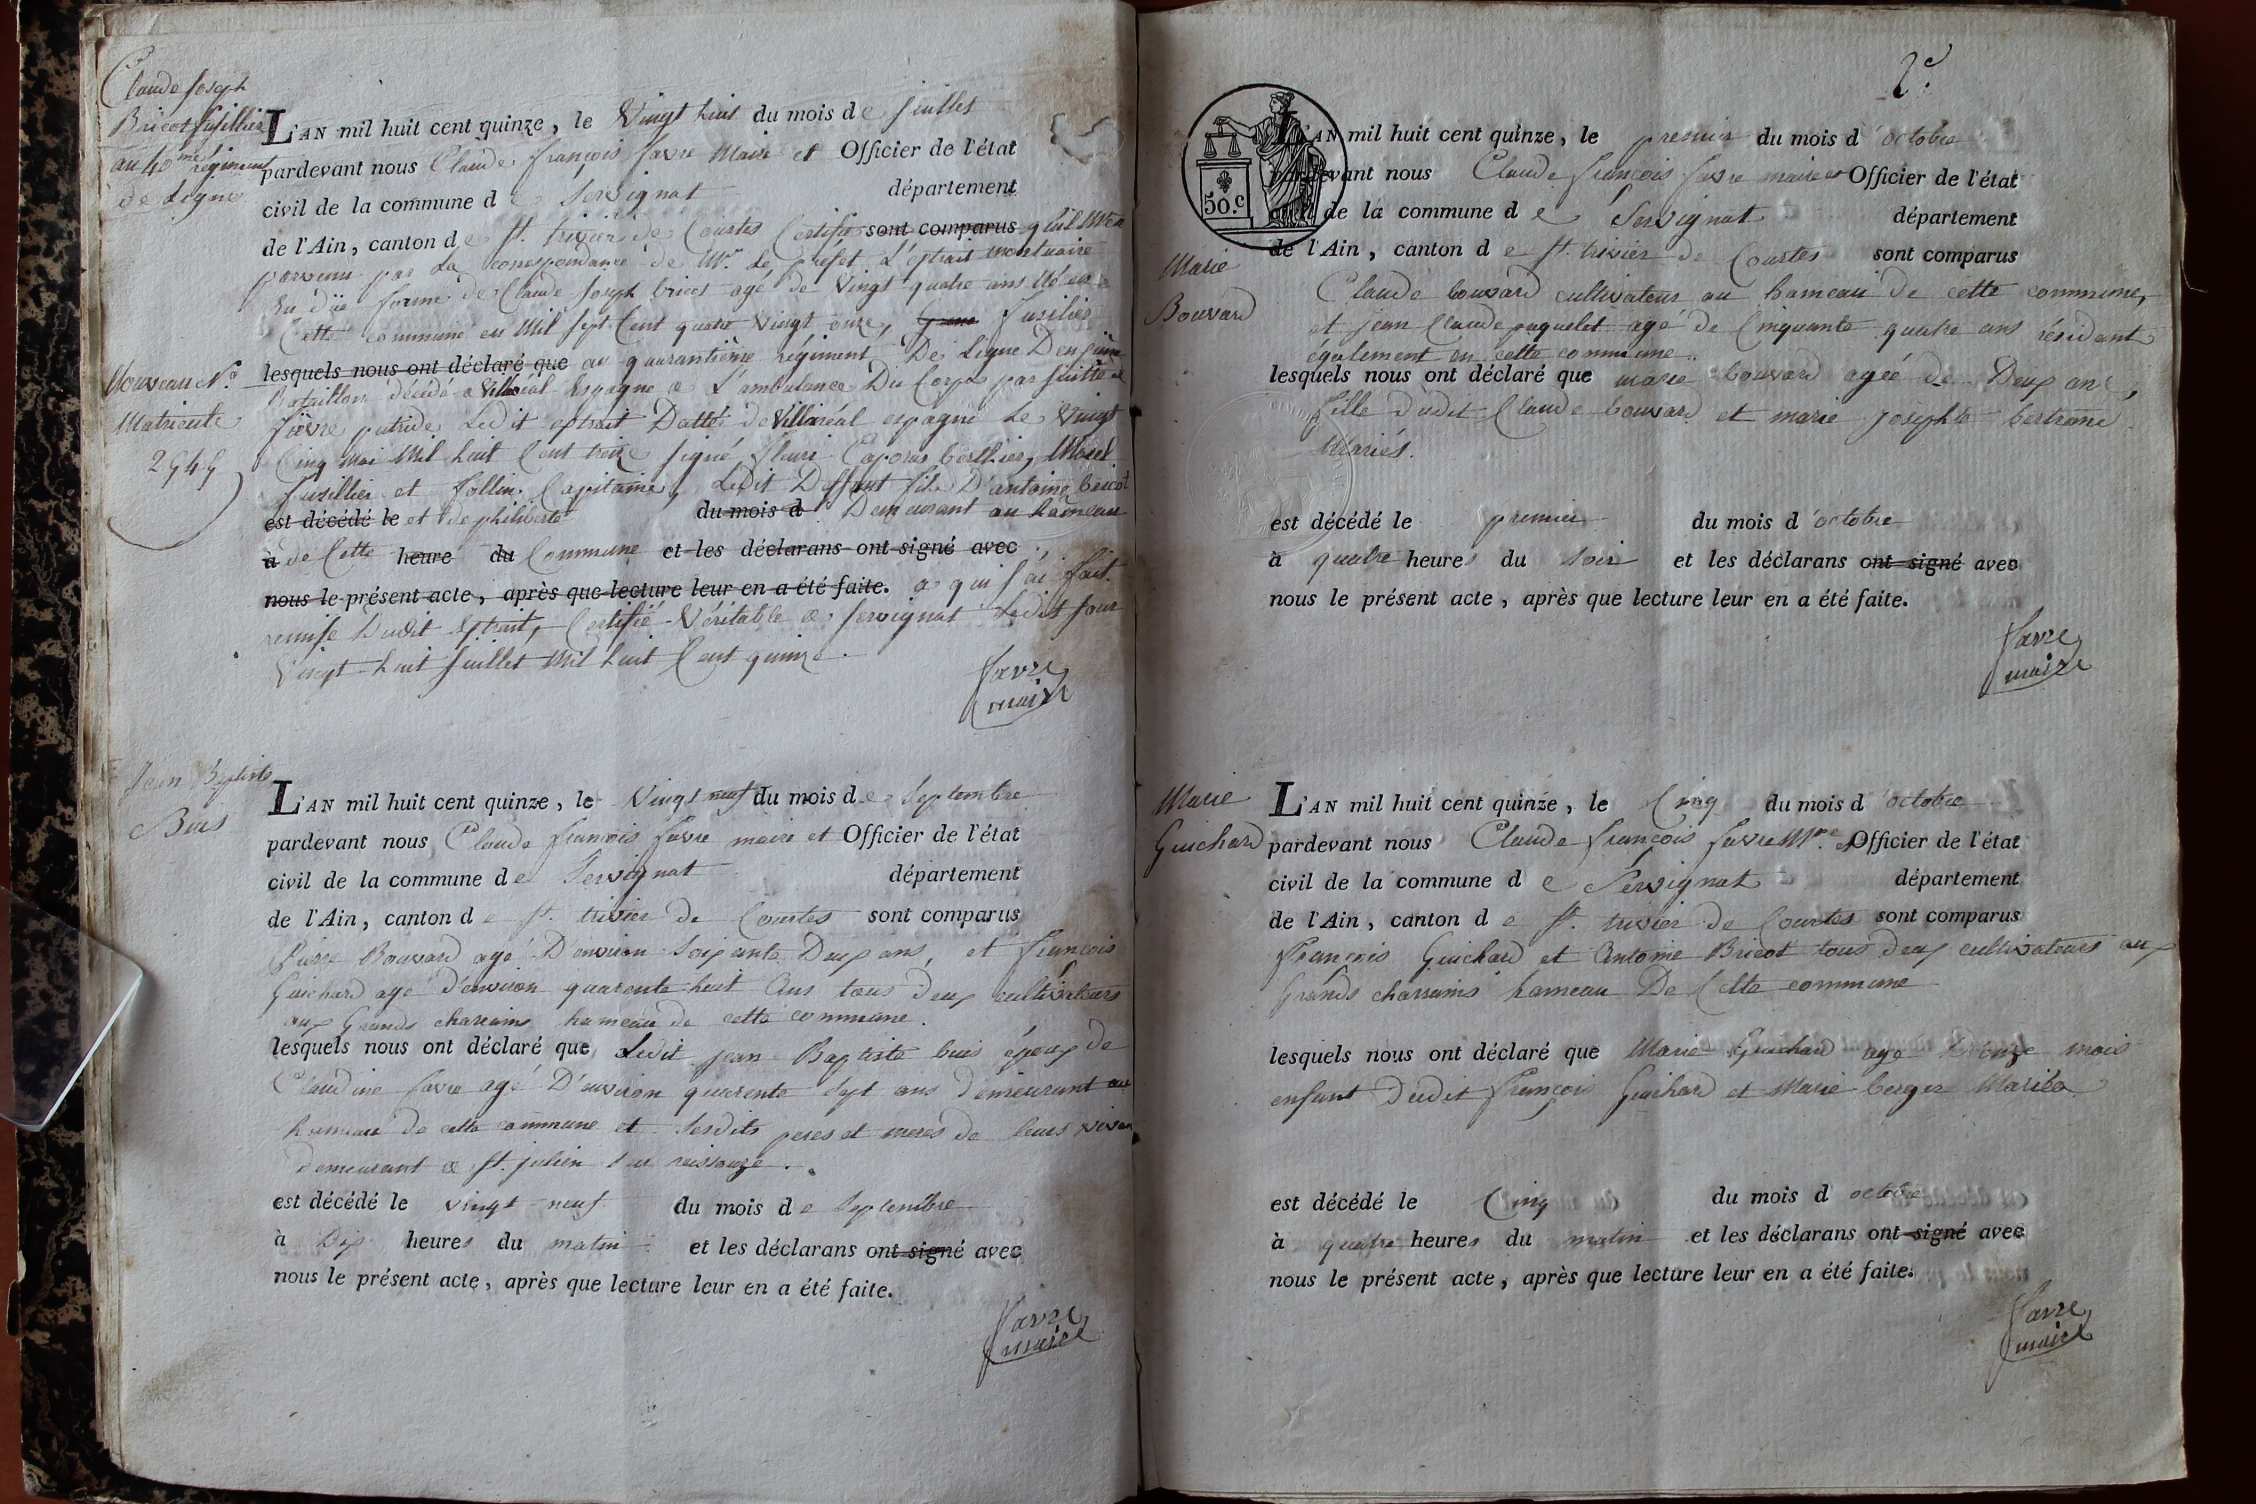 Claude Joseph
Bricot fusillier
au 40me régiment
de Ligne
L'AN mil huit cent quinze, le Vingt huit du mois de Juillet
pardevant nous Claude françois favre Maire et Officier de l'état
civil de la commune de Servignat département
de l'Ain, canton de St. trivier de Courtes Certifie sont comparus qu'il m'est
parvenu par la correspondance de Mr. Le préfet L'extrait mortuaire
en düe forme de Claude Joseph bricot agé de Vingt quatre ans né en
Cette commune en Mil Sept Cent quatre Vingt onze, fusilier
Nouveau No.
Matricule
2949
lesquels nous ont déclaré que au quarantième régiment De Ligne Deuxième
Bataillon décédé a Villaréal Espagne a L'ambulance Du Corps par suitte de
fièvre putride Ledit extrait Datté de Villaréal espagne Le Vingt
Cinq mai Mil huit Cent treize signé fleuri Caporal berthier, Morel
fusillier et follin Capitaine, Ledit Deffunt fils D'antoine bricot
est décédé le et de philiberte du mois d Demeurant au hameau
à de Cette heure du Commune et les déclarans ont signé avec
nous le présent acte, après que lecture leur en a été faite. a qui j'ai fait
remise dudit extrait, Certifié Véritable a servignat Ledit jour
Vingt huit Juillet Mil huit Cent quinze.
favre
maire
Jean Baptiste
Buis
L'AN mil huit cent quinze, le Vingt neuf du mois de Septembre
pardevant nous Claude françois favre maire et Officier de l'état
civil de la commune de Servignat département
de l'Ain, canton de St. trivier de Courtes sont comparus
Pierre Bouvard agé D'environ Soixante Deux ans, et françois
Guichard agé d'environ quarente huit Ans tous deux cultivateurs
aux Grands charrains hameau de cette commune.
lesquels nous ont déclaré que Ledit jean Baptiste buis époux de
Claudine favre agé D'environ quarente sept ans demeurant au
hameau de cette commune et Sesdits peres et meres de leurs vivan
demeurant a St. julien sur reissouze.
est décédé le vingt-neuf du mois de Septembre
à Dix heures du matin et les déclarans ont signé avec
nous le présent acte, après que lecture leur en a été faite.
favre
maire
2e.
50.c
L'AN mil huit cent quinze, le premier du mois d'octobre
pardevant nous Claude françois favre maire et Officier de l'état
civil de la commune de Servignat département
de l'Ain, canton de St. trivier de Courtes sont comparus
Marie
Bouvard
Claude bouvard cultivateur au hameau de cette commune,
et jean Claude paquelet agé de Cinquante quatre ans résidant
également en cette commune.
lesquels nous ont déclaré que marie bouvard agée de Deux ans,
fille dudit Claude bouvard et marie josephte bertrand
Mariés.
est décédé le premier du mois d'octobre
à quatre heures du soir et les déclarans ont signé avec
nous le présent acte, après que lecture leur en a été faite.
favre
maire
Marie
Guichard
L'AN mil huit cent quinze, le Cinq du mois d'octobre
pardevant nous Claude françois favre Mre. et Officier de l'état
civil de la commune de Servignat département
de l'Ain, canton de St. trivier de Courtes sont comparus
François Guichard et Antoine Bricot tous deux cultivateurs aux
Grands charrains hameau De Cette commune
lesquels nous ont déclaré que Marie Guichard agé D'onze mois
enfant Dudit françois Guichard et Marie berger Mariés
est décédé le Cinq du mois d octobre
à quatre heures du matin et les déclarans ont signé avec
nous le présent acte, après que lecture leur en a été faite.
favre
maire